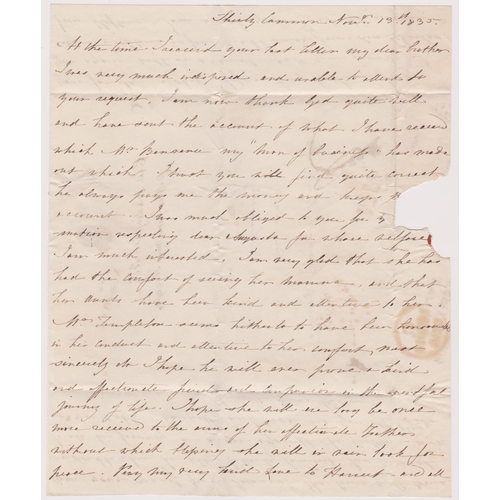 Shirly Common Novr. 13th 1835.
At the time I received your last letter my dear brother
I was very much indisposed and unable to attend to
your request. I am now thank God quite well
and have sent the account of what I have received
which Mr my "Man of business" has made
out which I trust you will find quite correct
he always pays me the money and keeps
account. I was much obliged to you for
mation respecting dear Augusta for whose welfare
I am much interested. I am very glad that she has
had the comfort of seeing her Mamma, and that
her Aunts have been kind and attentive to her.
Mr Templeton seems hitherto to have been
in his conduct and attentive to her comfort, most
sincerely do I hope he will ever prove a kind
and affectionate friend and companion in the
journey of life. I hope she will ere long be once
more received to the arms of her affectionate Father
without which blessing she will in vain look for
peace. Pray my very kind Love to Harriet and all